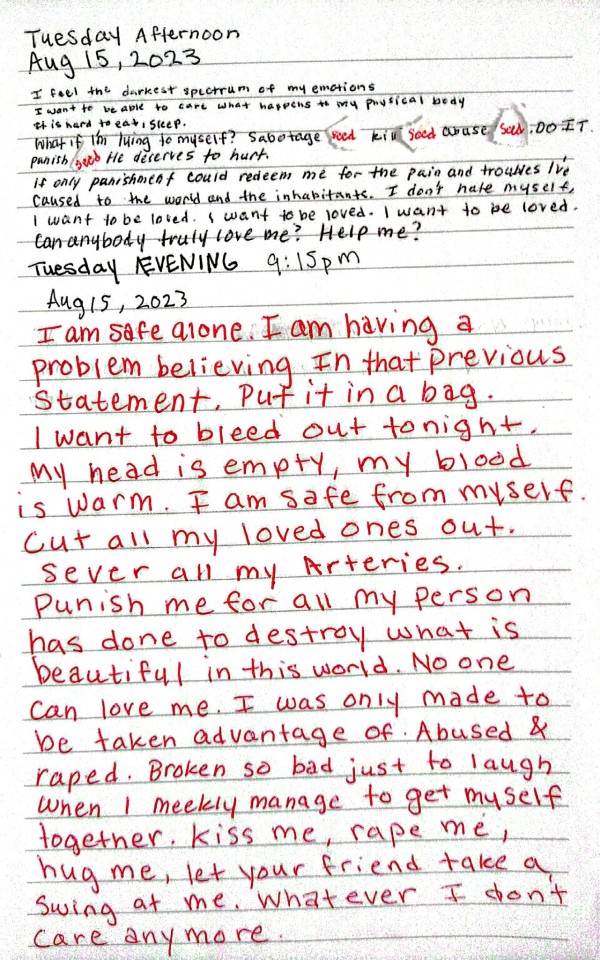 Tuesday Afternoon
Aug 15, 2023
I feel the darkest spectrum of my emotions
I want to be able to care what happens to my physical body
It is hard to eat, sleep.
What if I'm lying to myself? Sabotage seed kill seed abuse seed. DO IT.
punish seed He deserves to hurt.
If only punishment could redeem me for the pain and troubles I've
caused to the world and the inhabitants. I don't hate myself,
I want to be loved. I want to be loved. I want to be loved.
Can anybody truly love me? Help me?
Tuesday EVENING 9:15pm
Aug 15, 2023
I am safe alone. I am having a
problem believing In that previous
Statement. Put it in a bag.
I want to bleed out tonight.
My head is empty, my blood
is warm. I am safe from myself.
Cut all my loved ones out.
Sever all my Arteries.
Punish me for all my person
has done to destroy what is
beautiful in this world. No one
can love me. I was only made to
be taken advantage of. Abused &
raped. Broken so bad just to laugh
when I meekly manage to get myself
together. Kiss me, rape me,
hug me, let your friend take a
swing at me. Whatever I don't
care anymore.